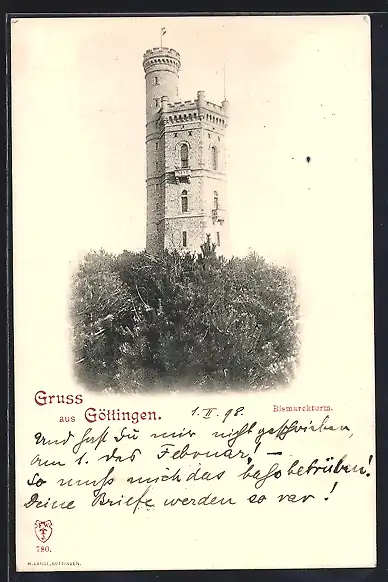 Gruss
aus Göttingen.
1. II. 98.
Bismarckturm.
Und hast Du mir nicht geschrieben,
Am 1. das Februar! —
So muß mich das baß betrüben!
Deine Briefe werden so rar!
780.
H. LANGE, GÖTTINGEN.